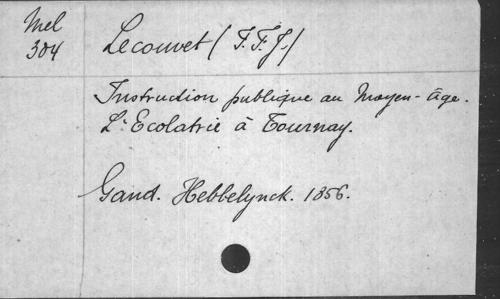 Mel
304
Lecouvet (F. F. J.)
Instruction publique au Moyen-âge.
L'Ecolatrie à Tournay.
Gand. Hebbelynck. 1856.